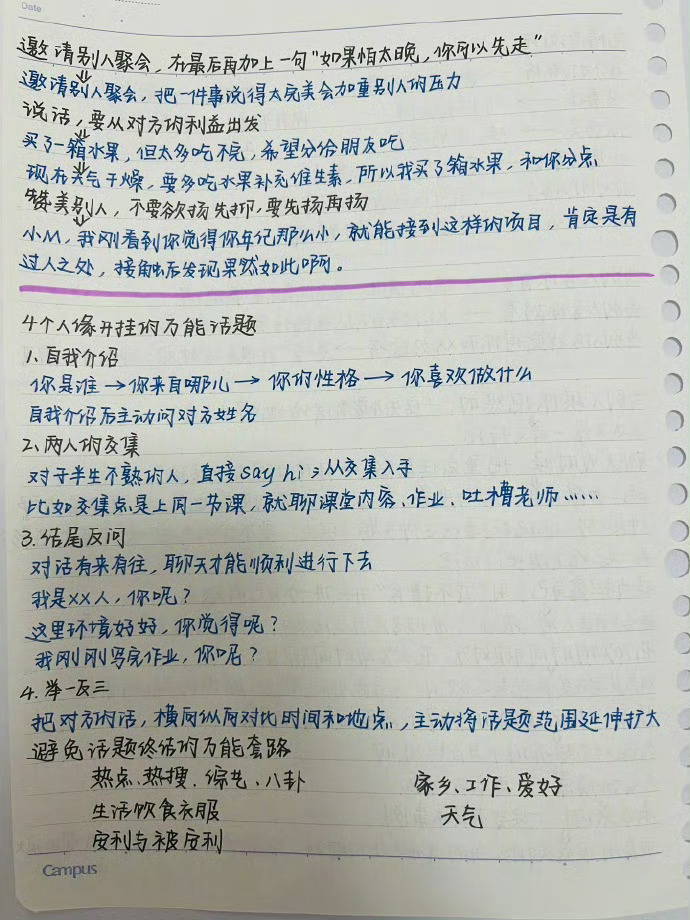 Date
邀请别人聚会，在最后再加上一句“如果怕太晚，你可以先走”
邀请别人聚会，把一件事说得太完美会加重别人的压力
说话，要从对方的利益出发
买了一箱水果，但太多吃不完，希望分给朋友吃
现在天气干燥，要多吃水果补充维生素，所以我买了箱水果，和你分点
赞美别人，不要欲扬先抑，要先扬再扬
小M，我刚看到你觉得你年纪那么小，就能接到这样的项目，肯定是有
过人之处，接触后发现果然如此啊。
4个人缘开挂的万能话题
1、自我介绍
你是谁→你来自哪儿→你的性格→你喜欢做什么
自我介绍后主动问对方姓名
2、两人的交集
对于半生不熟的人，直接say hi；从交集入手
比如交集点是上同一节课，就聊课堂内容、作业、吐槽老师……
3.结尾反问
对话有来有往，聊天才能顺利进行下去
我是XX人，你呢？
这里环境好好，你觉得呢？
我刚刚写完作业，你呢？
4.举一反三
把对方的话，横向纵向对比时间和地点，主动将话题范围延伸扩大
避免话题终结的万能套路
热点、热搜、综艺、八卦 家乡、工作、爱好
生活饮食衣服 天气
安利与被安利
Campus